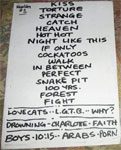 KISS
TORTURE
STRANGE
CATCH
HEAVEN
HOT HOT
NIGHT LIKE THIS
IF ONLY
COCKATOOS
WALK
IN BETWEEN
PERFECT
SNAKE PIT
100 YRS.
FOREST
FIGHT
LOVECATS - L.G.T.B. - WHY?
DROWNING - CHARLOTTE - FAITH
BOYS - 10:15 - ARABS - PORN